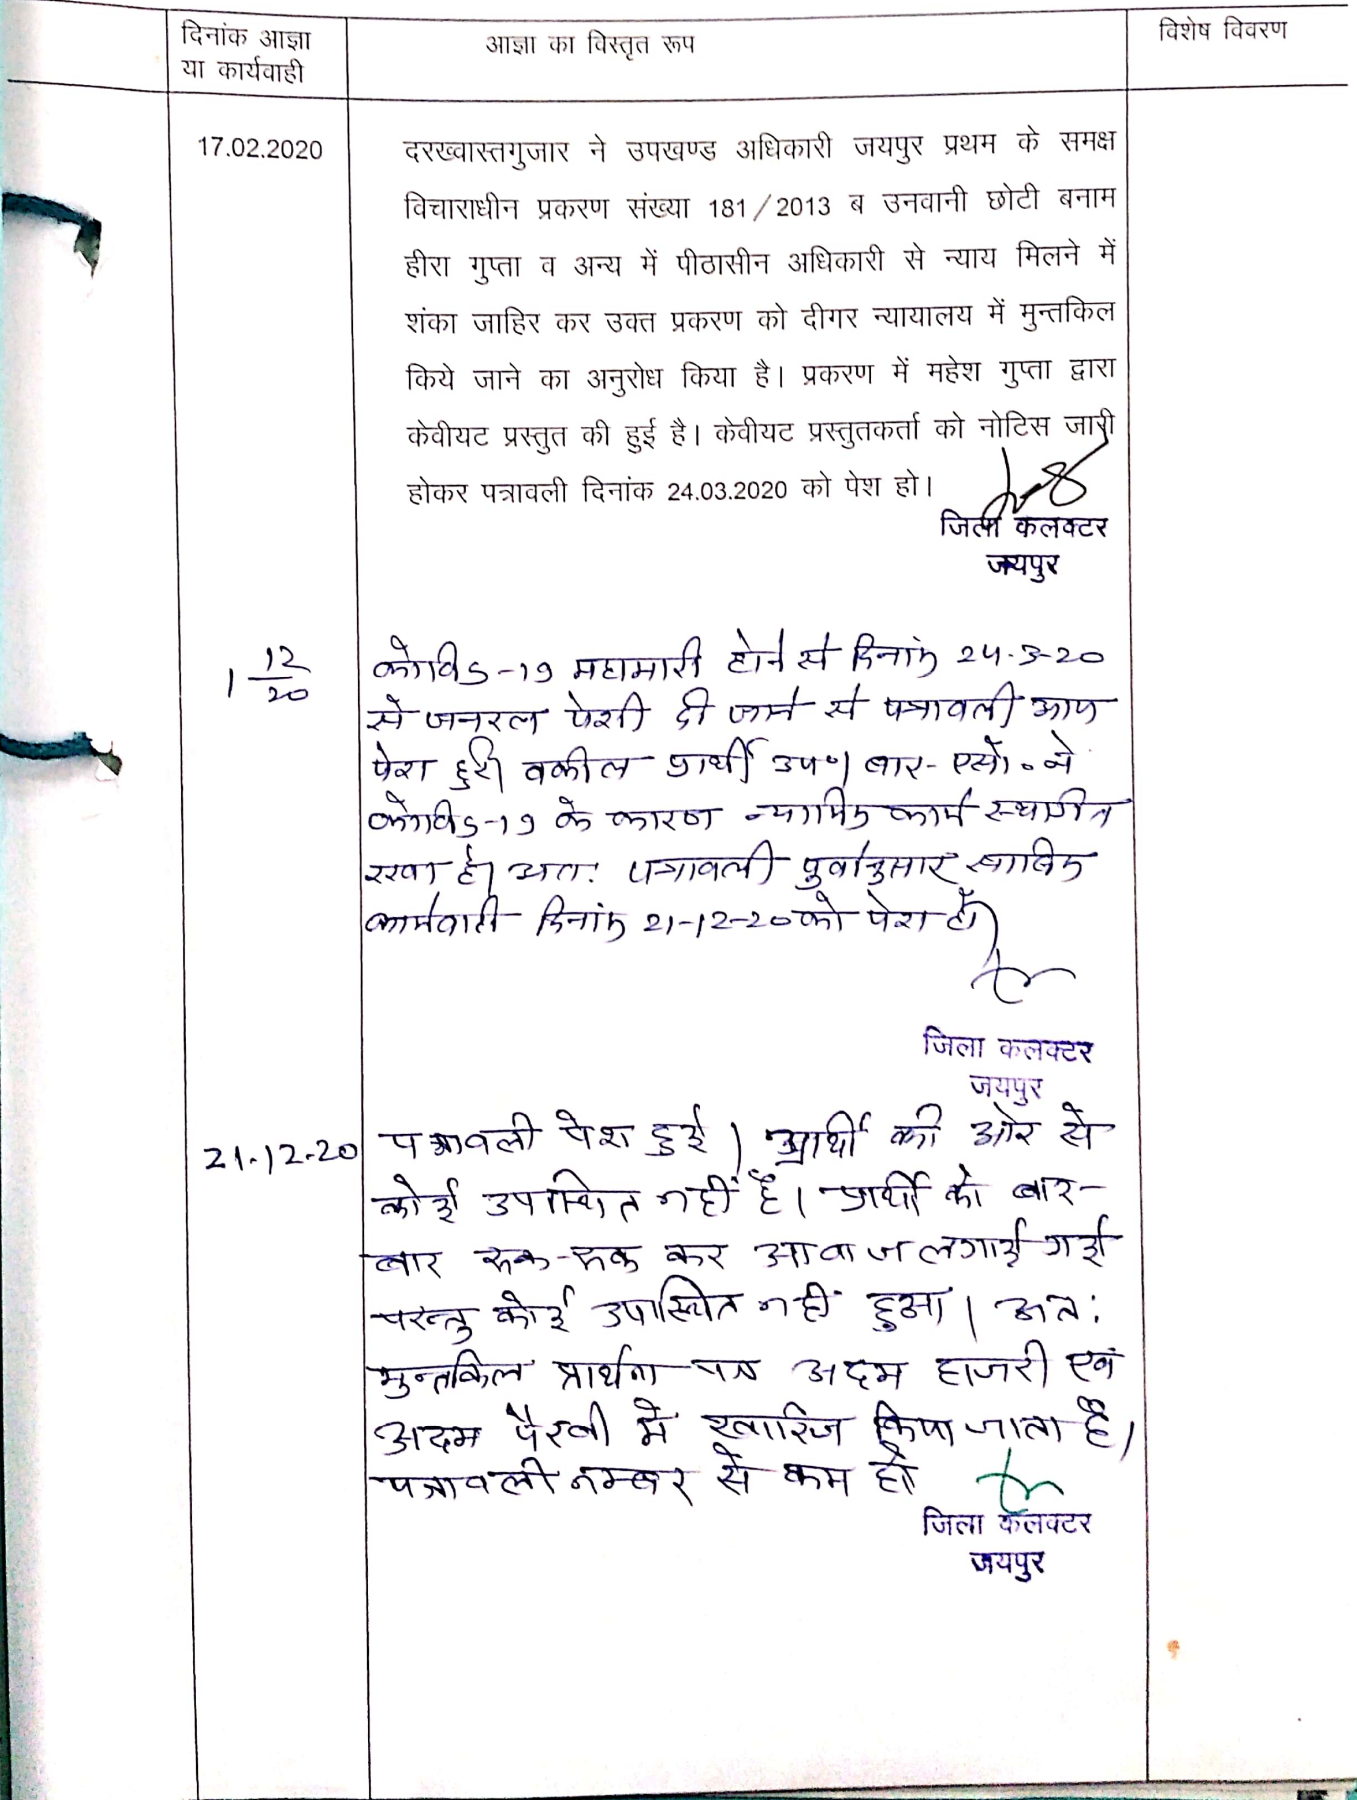 दिनांक आज्ञा
या कार्यवाही
आज्ञा का विस्तृत रूप
विशेष विवरण
17.02.2020
दरख्वास्तगुजार ने उपखण्ड अधिकारी जयपुर प्रथम के समक्ष
विचाराधीन प्रकरण संख्या 181/2013 ब उनवानी छोटी बनाम
हीरा गुप्ता व अन्य में पीठासीन अधिकारी से न्याय मिलने में
शंका जाहिर कर उक्त प्रकरण को दीगर न्यायालय में मुन्तकिल
किये जाने का अनुरोध किया है। प्रकरण में महेश गुप्ता द्वारा
केवीयट प्रस्तुत की हुई है। केवीयट प्रस्तुतकर्ता को नोटिस जारी
होकर पत्रावली दिनांक 24.03.2020 को पेश हो।
जिला कलक्टर
जयपुर
1 12/20
कोविड-19 महामारी होने से दिनांक 24-3-20
से जनरल पेशी दी जाने से पत्रावली आज
पेश हुई। वकील प्रार्थी उप। बार-एसो. ने
कोविड-19 के कारण न्यायिक कार्य स्थगित
रखा है। अतः पत्रावली पूर्वानुसार साबिक
कार्यवाही दिनांक 21-12-20 को पेश हो।
जिला कलक्टर
जयपुर
21-12-20
पत्रावली पेश हुई। प्रार्थी की ओर से
कोई उपस्थित नहीं है। प्रार्थी को बार-
बार रुक-रुक कर आवाज लगाई गई
परन्तु कोई उपस्थित नहीं हुआ। अतः
मुन्तकिल प्रार्थना पत्र अदम हाजरी एवं
अदम पैरवी में खारिज किया जाता है।
पत्रावली नम्बर से कम हो
जिला कलक्टर
जयपुर